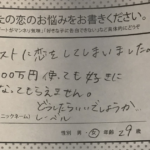 たの恋のお悩みをお書きください。
ストに恋をしてしまいました。
00万円使っても好きに
なってもらえません。
どうしたらいいでしょうか
ニックネーム)レーベル
性別 男・女 年齢 29歳